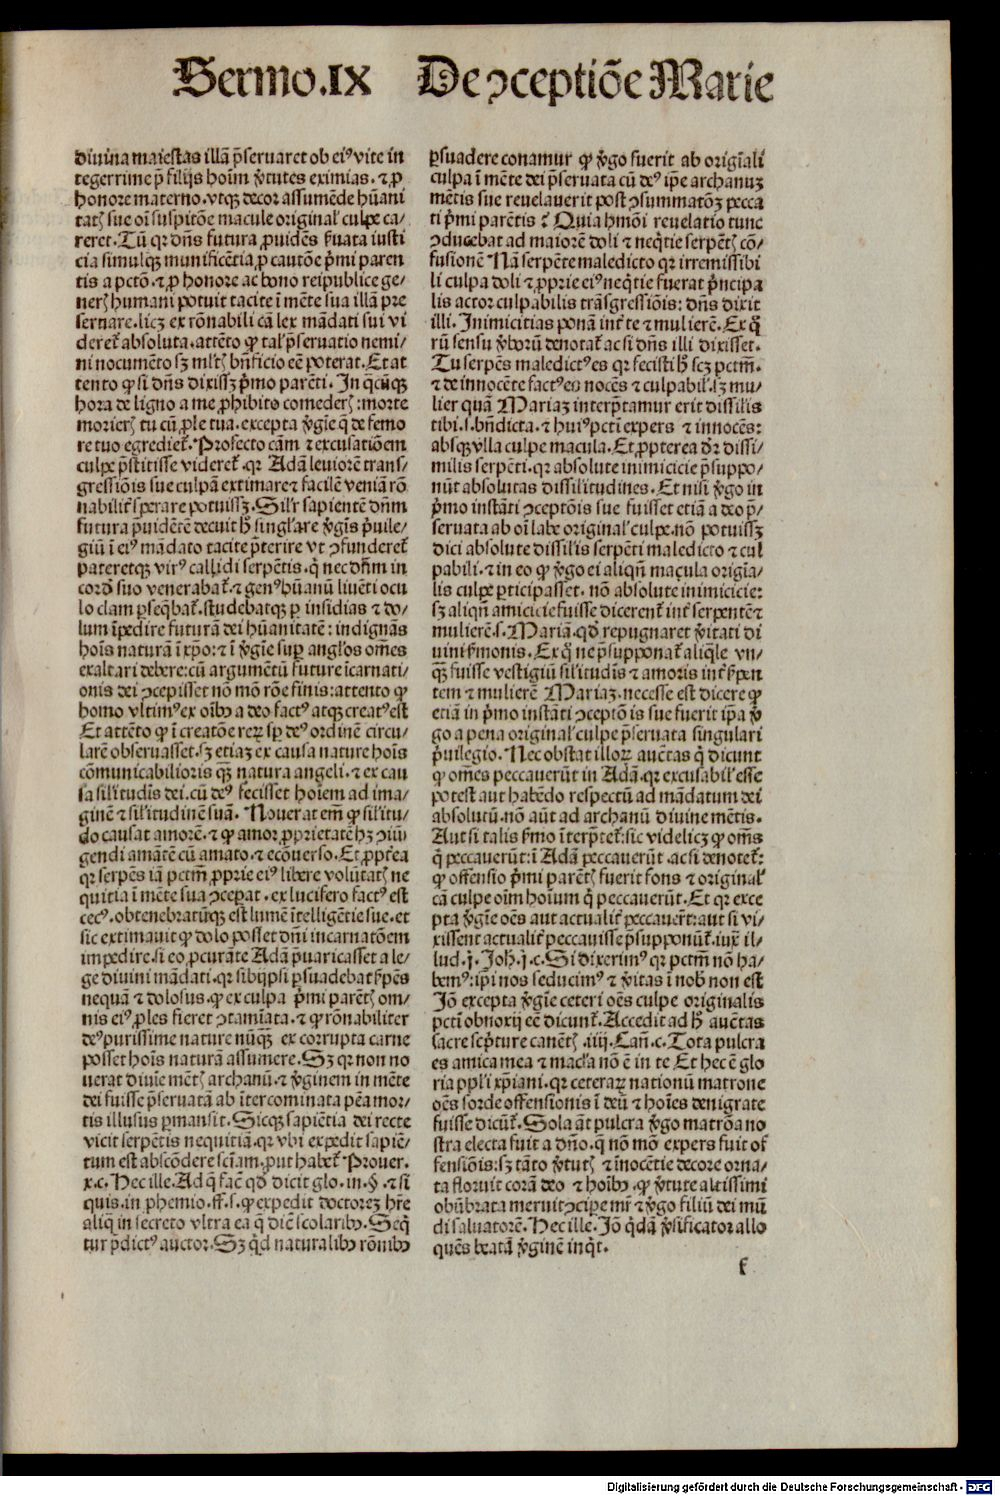 Sermo.IX De ↄceptiōe Marie
diuina maiestas illā p̄seruaret ob eiꝰ vite in
tegerrime p̄ filijs hoīm v̓tutes eximias.⁊ ꝓ
honore materno.vtqꝫ decor assumēde hūani
tatꝭ sue oī suspitōe macule original̓ culpe ca⸗
reret.Tū qꝛ dn̄s futura ꝓuidēs ẜuata iusti
cia simulqꝫ munificētia ꝓ cautōe p̓mi paren
tis a pctō.⁊ ꝓ honore ac bono reipublice ge⸗
nerꝭ humani potuit tacite ī mēte sua illā pre
seruare.licꝫ ex rōnabili cā lex mādati sui vi
deret̓ absoluta.attēto ꝙ tal̓ p̄seruatio nemi⸗
ni nocumēto sꝫ ml̓tꝭ bn̄ficio eē poterat.Et at
tento ꝙ si dn̄s dixissꝫ p̓mo parēti.In q̄cūqꝫ
hora de ligno a me ꝓhibito comederꝭ:morte
morierꝭ tu cū ꝓle tua.excepta v̓gīe q̄ de femo
re tuo egrediet̓.Profecto cām ⁊ excusatiōem
culpe p̄stitisse videret̓.qꝛ Adā leuiorē trans⸗
gressiōis sue culpā extimare ⁊ facilē veniā rō
nabilit̓ sperare potuissꝫ.Sil̓r sapientē dn̄m
futura p̄uidētē decuit h̓ singl̓are v̓gīs p̓uile⸗
giū ī eiꝰ mādato tacite p̄terire vt ↄfunderet̓
pateretqꝫ virꝰ callidi serpētis.q̓ nec dn̄m in
cordꝭ suo venerabat̓.⁊ genꝰ hūanū liuēti ocu
lo clam ꝑseq̄bat̓.studebatqꝫ ꝑ insidias ⁊ do⸗
lum īpedire futurā dei hūanitatē:indignās
hoīs naturā ī xp̄o:⁊ ī v̓gīe suꝑ angl̓os om̄es
exaltari debere:cū argumētū future īcarnati⸗
onis dei ↄcepisset nō mō rōe finis:attento ꝙ
homo vltimꝰ ex oībꝰ a deo factꝰ atqꝫ creatꝰ est
Et attēto ꝙ ī creatōe reꝝ sꝑ deꝰ ordinē circu⸗
larē obseruasset.sꝫ etiaꝫ ex causa nature hoīs
cōmunicabilioris qꝫ̄ natura angeli.⁊ ex cau
sa sil̓itudīs dei.cū deꝰ fecisset hoīem ad ima⸗
ginē ⁊ sil̓itudinē suā.Nouerat em̄ ꝙ sil̓itu⸗
do causat amorē.⁊ ꝙ amor ꝓprietatē hꝫ ↄiū
gendi amātē cū amato.⁊ ecōuerso.Et ꝓpt̓ea
qꝛ serpēs iā pctm̄ ꝓprie eiꝰ libere volūtatꝭ ne
quitia ī mēte sua ↄceꝑat.ex lucifero factꝰ est
cecꝰ.obtenebratūqꝫ est lumē ītelligētie sue.et
sic extimauit ꝙ dolo posset dn̄i incarnatōem
impedire.si eo ꝓcurāte Adā p̄uaricasset a le⸗
ge diuini mādati.qꝛ sibijpsi ꝑsuadebat ẜpēs
nequā ⁊ dolosus.ꝙ ex culpa p̓mi parētꝭ om⸗
nis eiꝰ ꝓles fieret ↄtamīata.⁊ ꝙ rōnabiliter
deꝰ purissime nature nūqꝫ̄ ex corrupta carne
posset hoīs naturā assumere.Sꝫ qꝛ non no
uerat diuīe mētꝭ archanū.⁊ v̓ginem in mēte
dei fuisse p̄seruatā ab ītercominata pēa mor⸗
tis illusus ꝑmansit.Sicqꝫ sapiētia dei recte
vicit serpētis nequitiā.qꝛ vbi expedit sapiē⸗
tum est abscōdere sciam.ꝓut habet̓ Prouer.
x.c.Hec ille.Ad q̄ fac̄ qd̓ dicit glo.in.§.⁊ si
quis.in ꝓhemio.ff.s.ꝙ expedit doctoreꝫ hr̄e
aliq̄ in secreto vltra ea q̄ dic̄ scolaribꝰ.Seq̄
tur p̄dictꝰ auctor.Sꝫ q̓d naturalibꝰ rōnibꝰ
ꝑsuadere conamur ꝙ v̓go fuerit ab origīali
culpa ī mēte dei p̄seruata cū deꝰ ip̄e archanuꝫ
mētis sue reuelauerit post ↄsummatōꝫ pecca
ti p̓mi parētis? Quia hmōi reuelatio tunc
ↄducebat ad maiorē doli ⁊ neq̓tie serpētꝭ cō⸗
fusionē Nā serpēte maledicto qꝛ irremissibi
li culpa doli ⁊ ꝓprie eiꝰ neq̓tie fuerat p̓ncipa
lis actor culpabilis trāsgressiōis:dn̄s dixit
illi.Inimicitias ponā int̓ te ⁊ mulierē.Ex q̄
rū sensu v̓borū denotat̓ ac si dn̄s illi dixisset.
Tu serpēs maledictꝰ es qꝛ fecisti h̓ scꝫ pctm̄.
⁊ de innocēte factꝰ es nocēs ⁊ culpabil̓.sꝫ mu⸗
lier quā Mariaꝫ interp̄tamur erit dissil̓is
tibi.s.bn̄dicta.⁊ huiꝰ pcti expers ⁊ innocēs:
absqꝫ vlla culpe macula.Et ꝓpterea dr̄ dissi⸗
milis serpēti.qꝛ absolute inimicicie p̄suppo⸗
nūt absolutas dissil̓itudines.Et nisi v̓go in
p̓mo instāti ↄceptōis sue fuisset etiā a deo p̄⸗
seruata ab oī labe original̓ culpe.nō potuissꝫ
dici absolute dissil̓is serpēti maledicto ⁊ cul
pabili.⁊ in eo ꝙ v̓go ei aliqn̄ macula origīa⸗
lis culpe ꝑticipasset.nō absolute inimicicie:
sꝫ aliqn̄ amicicie fuisse dicerent̓ int̓ serpentē ⁊
mulierē.s.Mariā.qd̓ repugnaret v̓itati di
uini ẜmonis.Ex q̄ ne p̄supponat̓ aliq̄le vn⸗
qꝫ̄ fuisse vestigiū sil̓itudīs ⁊ amoris int̓ ẜpen
tem ⁊ mulierē Mariaꝫ.necesse est dicere ꝙ
etiā in p̓mo instāti ↄceptōis sue fuerit ip̄a v̓
go a pena original̓ culpe p̄seruata singulari
p̓uilegio.Nec obstat illoꝝ auc̄tas q̓ dicunt
ꝙ om̄es peccauerūt in Adā.qꝛ excusabil̓ esse
potest aut habēdo respectū ad mādatum dei
absolutū.nō aūt ad archanū diuine mētis.
Aut si talis ẜmo īterp̄tet̓:sic videlicꝫ ꝙ om̄s
q̓ peccauerūt:ī Adā peccauerūt.ac si denotet̓:
ꝙ offensio p̓mi parētꝭ fuerit fons ⁊ original̓
cā culpe oīm hoīum q̓ peccauerūt.Et qꝛ exce
pta v̓gīe oēs aut actualit̓ peccauer̄t:aut si vi⸗
xissent actualit̓ peccauisse p̄supponūt̓.iux̄ il⸗
lud.j.Joh̓.j.c.Si dixerimꝰ qꝛ pctm̄ nō ha⸗
bemꝰ:ip̄i nos seducimꝰ ⁊ v̓itas ī nob̓ non est
Jō excepta v̓gīe ceteri oēs culpe originalis
pcti obnoxij eē dicunt̓.Accedit ad h̓ auc̄tas
sacre scp̄ture canētꝭ.iiij.Can̄.c.Tota pulcra
es amica mea ⁊ macl̓a nō ē in te Et hec ē glo
ria ppl̓i xp̄iani.qꝛ ceteraꝝ nationū matrone
oēs sorde offensionis ī deū ⁊ hoīes denigrate
fuisse dicūt̓.Sola aūt pulcra v̓go matrōa no
stra electa fuit a dn̄o.q̄ nō mō expers fuit of
fensiōis:sꝫ tāto v̓tutꝭ ⁊ inocētie decore orna⸗
ta floruit corā deo ⁊ hoībꝰ.ꝙ v̓tute altissimi
obūbrata meruit ↄcipe mr̄ ⁊ v̓go filiū dei mū
di saluatorē.Hec ille.Jō q̓dā v̓sificator allo
quēs beatā v̓ginē inq̓t.
k
Digitalisierung gefördert durch die Deutsche Forschungsgemeinschaft - DFG